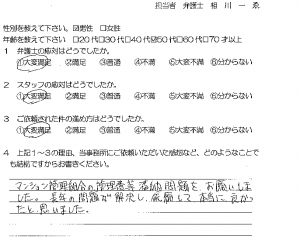 担当者 弁護士 相川一ゑ
性別を教えて下さい。☑男性 □女性
年齢を教えて下さい □20代□30代□40代☑50代□60代□70才以上
1 弁護士の応対はどうでしたか。
①大変満足 ②満足 ③普通 ④不満 ⑤大変不満 ⑥分からない
2 スタッフの応対はどうでしたか。
①大変満足 ②満足 ③普通 ④不満 ⑤大変不満 ⑥分からない
3 ご依頼された件の進め方はどうでしたか。
①大変満足 ②満足 ③普通 ④不満 ⑤大変不満 ⑥分からない
4 上記1~3の理由、当事務所にご依頼いただいた感想など、どのようなことで
も結構ですからお書きください。
マンション管理組合の管理費等 滞納問題を、お願いしま
した。長年の問題が解決し、依頼して本当に良かっ
たと、思いました。